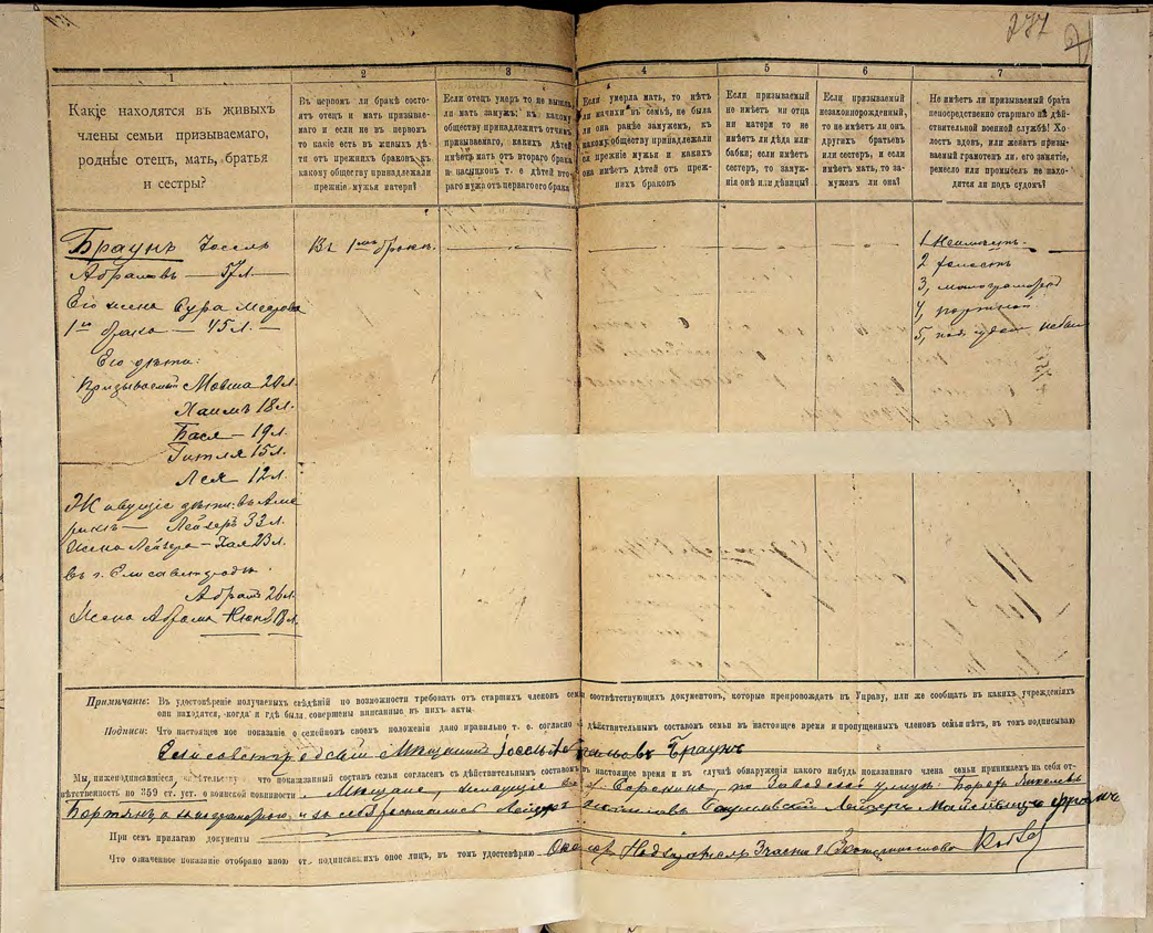 277
1
2
3
4
5
6
7
Какіе находятся въ живыхъ
члены семьи призываемаго,
родные отецъ, мать, братья
и сестры?
Въ первомъ ли бракѣ состо-
ятъ отецъ и мать призывае-
маго и если не въ первомъ
то какіе есть въ живыхъ дѣ-
ти отъ прежнихъ браковъ къ
какому обществу принадлежали
прежніе мужья матери?
Если отецъ умеръ то не вышла
ли мать замужъ; къ какому
обществу принадлежитъ отчимъ
призываемаго, какихъ дѣтей
имѣетъ мать отъ втораго брака
и пасынковъ т. е дѣтей вто-
раго мужа отъ перваго его брака
Если умерла мать, то нѣтъ
ли мачихи въ семьѣ, не была
ли она ранѣе замужемъ, къ
какому обществу принадлежали
ея прежніе мужья и какихъ
она имѣетъ дѣтей отъ преж-
нихъ браковъ
Если призываемый
не имѣетъ ни отца
ни матери то не
имѣетъ ли дѣда или
бабки; если имѣетъ
сестеръ, то замуж-
нія онѣ или дѣвицы?
Если призываемый
незаконнорожденный,
то не имѣетъ ли онъ
другихъ братьевъ
или сестеръ, и если
имѣетъ мать, то за-
мужемъ ли она?
Не имѣетъ ли призываемый брата
непосредственно старшаго на дѣй-
ствительной военной службѣ! Хо-
лостъ вдовъ, или женатъ призы-
ваемый грамотенъ ли, его занятіе,
ремесло или промыселъ не нахо-
дится ли подъ судомъ?
Браунъ Іоссель
Абрамовъ — 57 л —
Его жена Сура Меерова
1го брака — 45 л. —
Его дѣти:
Призываемый Мовша 20 л.
Хаимъ 18 л.
Бася — 19 л.
Гитля 15 л.
Лея 12 л.
Живущіе дѣти въ Аме
рикѣ — Лейзеръ 33 л.
Жена Лейзера — Хая 23 л.
въ г. Елисаветградѣ.
Абрамъ 26 л.
Жена Абрама
Въ 1мъ бракѣ.
1 Неимѣетъ.
2 холостъ
3, малограмотный
4, портной
5, подъ судомъ небылъ
Примѣчаніе: Въ удостовѣреніе получаемыхъ свѣдѣній по возможности требовать отъ старшихъ членовъ семьи соотвѣтствующихъ документовъ, которые препровождать въ Управу, или же сообщать въ какихъ учрежденіяхъ
они находятся, когда и гдѣ были совершены вписанные въ нихъ акты.
Подписи: Что настоящее мое показаніе о семейномъ своемъ положеніи дано правильно т. е. согласно съ дѣйствительнымъ составомъ семьи въ настоящее время и пропущенныхъ членовъ семьи нѣтъ, въ томъ подписываю
Елисаветградскій Мѣщанинъ Іоссель Абрамовъ Браунъ
Мы, нижеподписавшіеся, что показанный составъ семьи согласенъ съ дѣйствительнымъ составомъ въ настоящее время и въ случаѣ обнаруженія какого нибудь показаннаго члена семьи принимаемъ на себя от-
вѣтственность по 359 ст. уст. о воинской повинности. Мѣщане,
При семъ прилагаю документы
Что означенное показаніе отобрано мною отъ подписавшихъ оное лицъ, въ томъ удостовѣряю